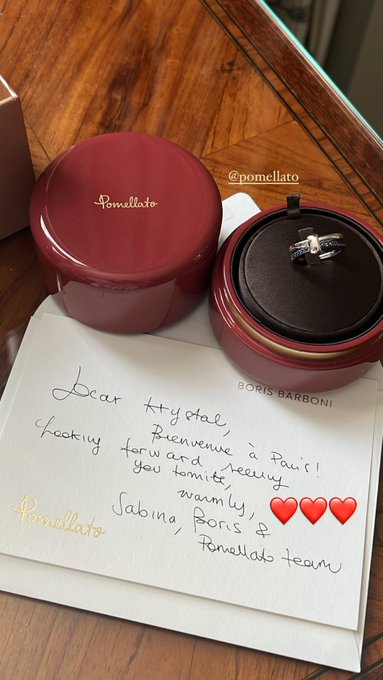 Pomellato
@pomellato
BORIS BARBONI
Dear Krystal,
Bienvenue à Paris!
Looking forward seeing
you tonite,
warmly,
Sabina, Boris &
Pomellato team
Pomellato